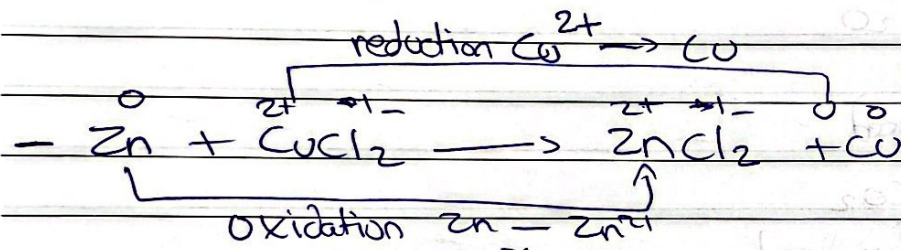 reduction Cu²⁺ → Cu
0 2+ 1- 2+ 1- 0 0
- Zn + CuCl₂ → ZnCl₂ + Cu
oxidation Zn - Zn²⁺